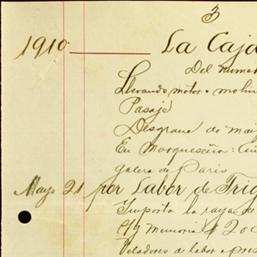 3
1910 La Caja
Del numer
Llevando motor molin
Pasaje
Desgrana de mai
En Marqueseña:
galera de Paris
Mayo 21 por Labor de Trig
Importa la raya de
C/y Memoria # 200
Veladores de labor